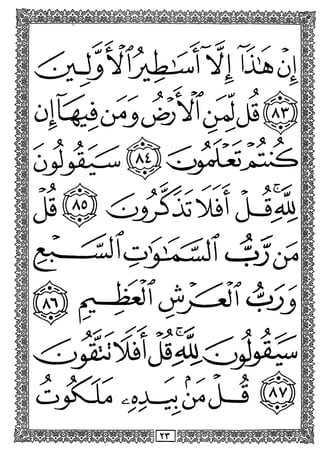 إِنْ هَٰذَآ إِلَّآ أَسَٰطِيرُ ٱلْأَوَّلِينَ
﴿٨٣﴾ قُل لِّمَنِ ٱلْأَرْضُ وَمَن فِيهَآ إِن
كُنتُمْ تَعْلَمُونَ ﴿٨٤﴾ سَيَقُولُونَ
لِلَّهِ ۚ قُلْ أَفَلَا تَذَكَّرُونَ ﴿٨٥﴾ قُلْ
مَن رَّبُّ ٱلسَّمَٰوَٰتِ ٱلسَّبْعِ
وَرَبُّ ٱلْعَرْشِ ٱلْعَظِيمِ ﴿٨٦﴾
سَيَقُولُونَ لِلَّهِ ۚ قُلْ أَفَلَا تَتَّقُونَ
﴿٨٧﴾ قُلْ مَنۢ بِيَدِهِۦ مَلَكُوتُ
٢٣